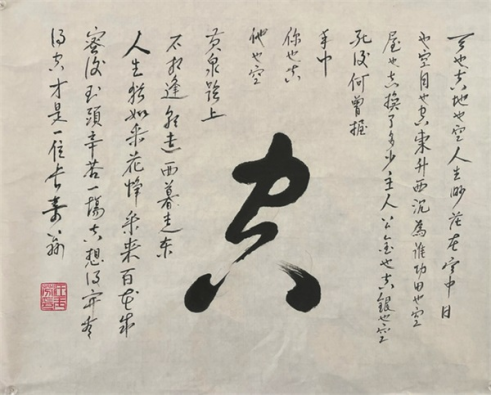 空
天也空地也空人生渺茫在空中日
也空月也空東升西沉為誰功田也空
屋也空換了多少主人公金也空銀也空
死後何曾握
手中
你也空
他也空
黃泉路上
不相逢朝走西暮走东
人生猶如采花蜂采来百花成
蜜後到頭辛苦一場空想得穿看
得空才是一位長壽翁